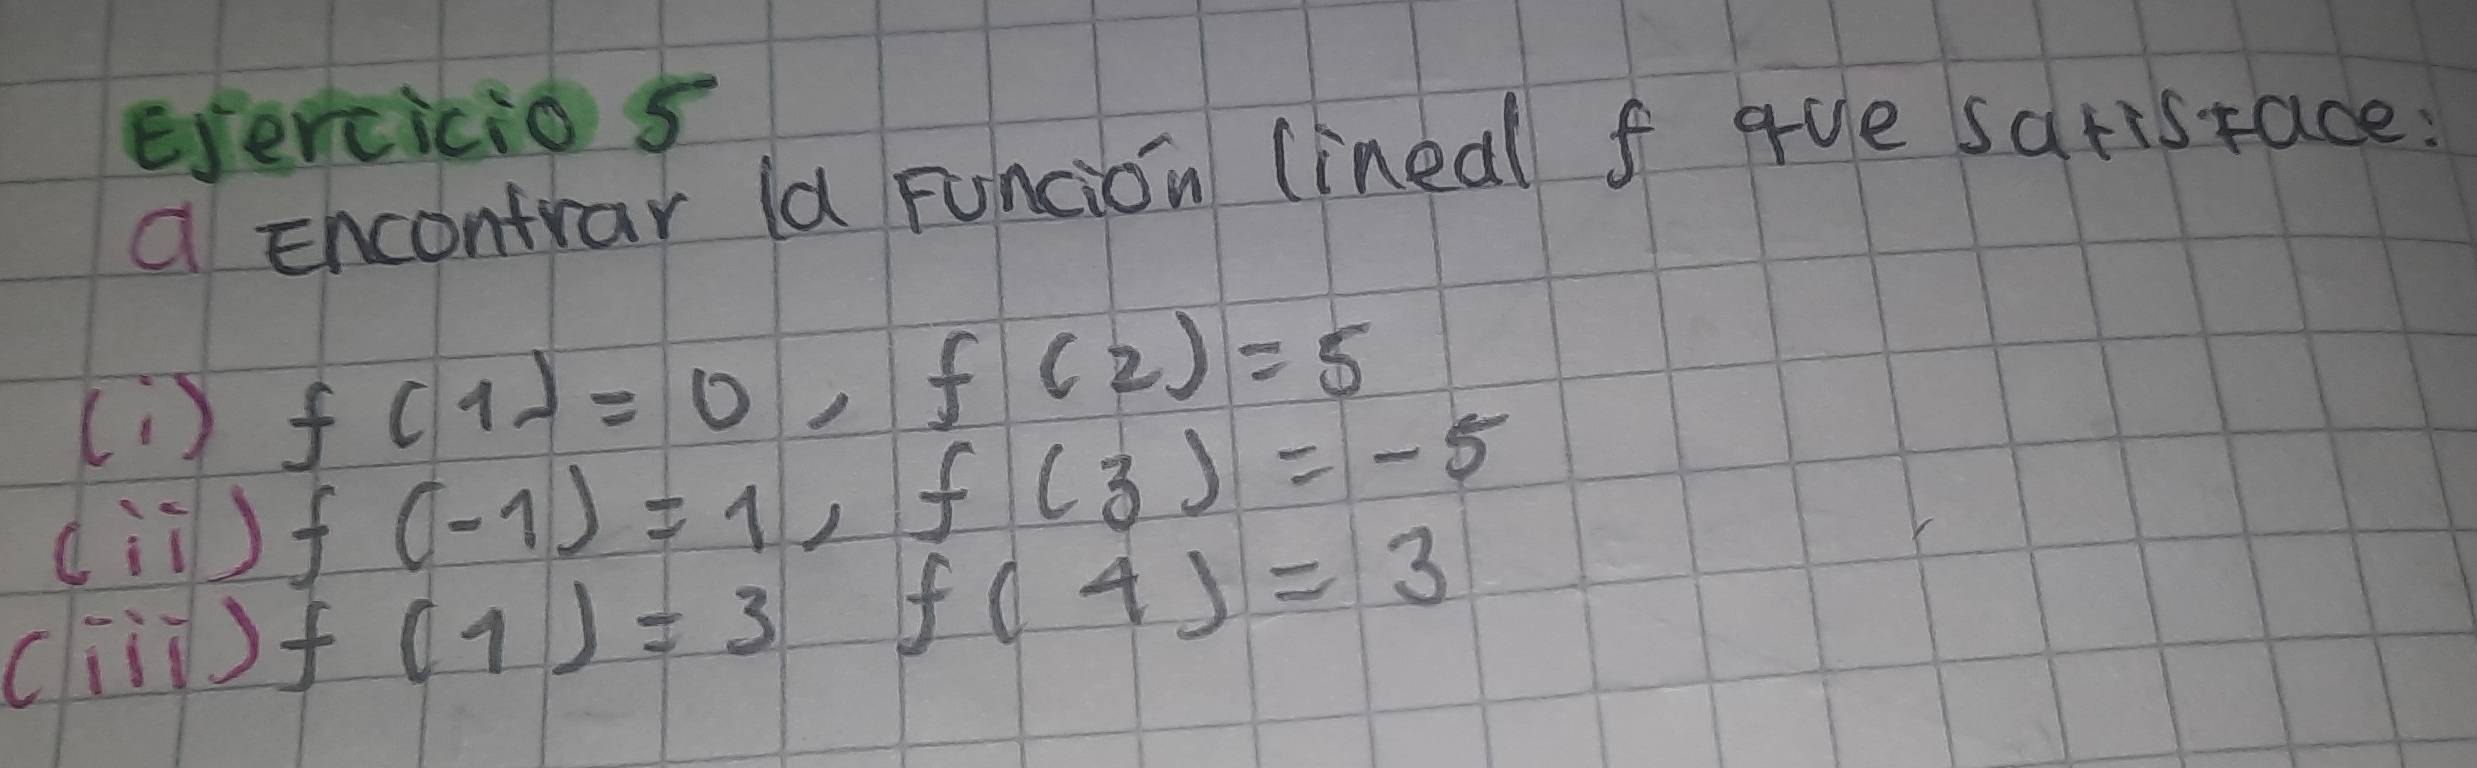 Ejercicio 5
a Encontrar la Función lineal f que satisface:
(i) f(1)=0, f(2)=5
(ii) f(-1)=1, f(3)=-5
(iii) f(1)=3 f(4)=3